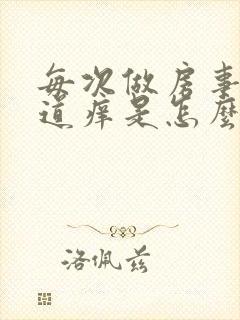 每次做房事
道痒是怎麼
洛佩兹